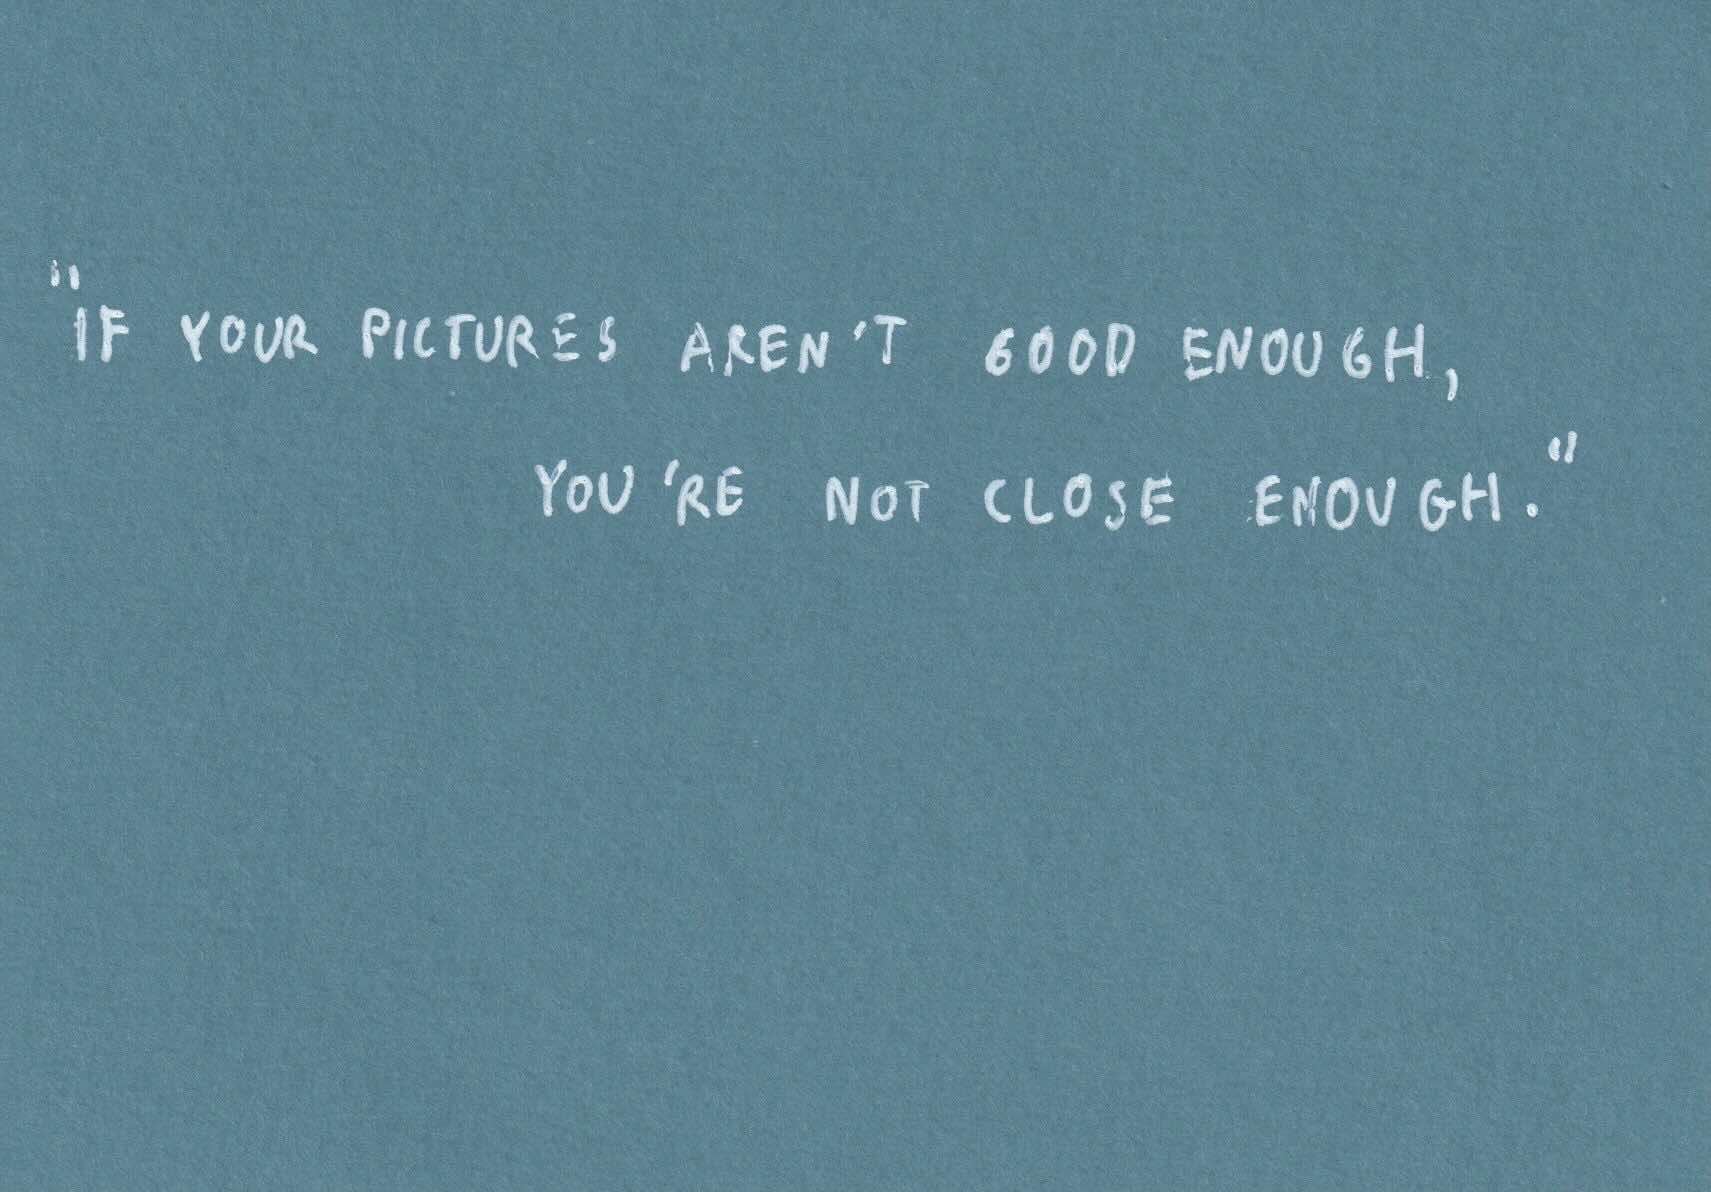 "IF YOUR PICTURES AREN'T GOOD ENOUGH,
YOU'RE NOT CLOSE ENOUGH."